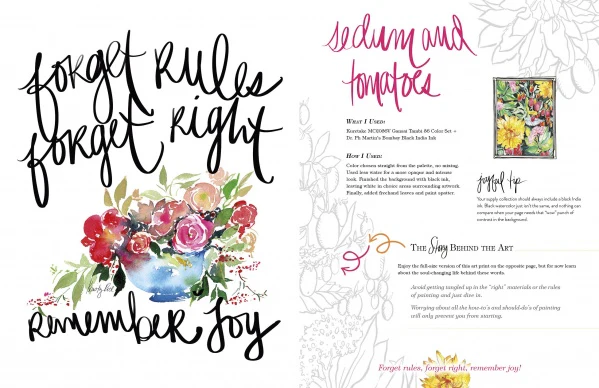 forget rules
forget right
remember joy
sedum and
tomatoes
What I Used:
Kuretake MC20/36V Gansai Tambi 36 Color Set +
Dr. Ph Martin's Bombay Black India Ink
How I Used:
Color chosen straight from the palette, no mixing.
Used less water for a more opaque and intense
look. Finished the background with black ink,
leaving white in choice areas surrounding artwork.
Finally, added freehand leaves and paint spatter.
joyful tip
Your supply collection should always include a black India
ink. Black watercolor just isn't the same, and nothing can
compare when your page needs that "wow" punch of
contrast in the background.
The Story Behind the Art
Enjoy the full-size version of this art print on the opposite page, but for now learn
about the soul-changing life behind these words.
Avoid getting tangled up in the "right" materials or the rules
of painting and just dive in.
Worrying about all the how-to's and should-do's of painting
will only prevent you from starting.
Forget rules, forget right, remember joy!